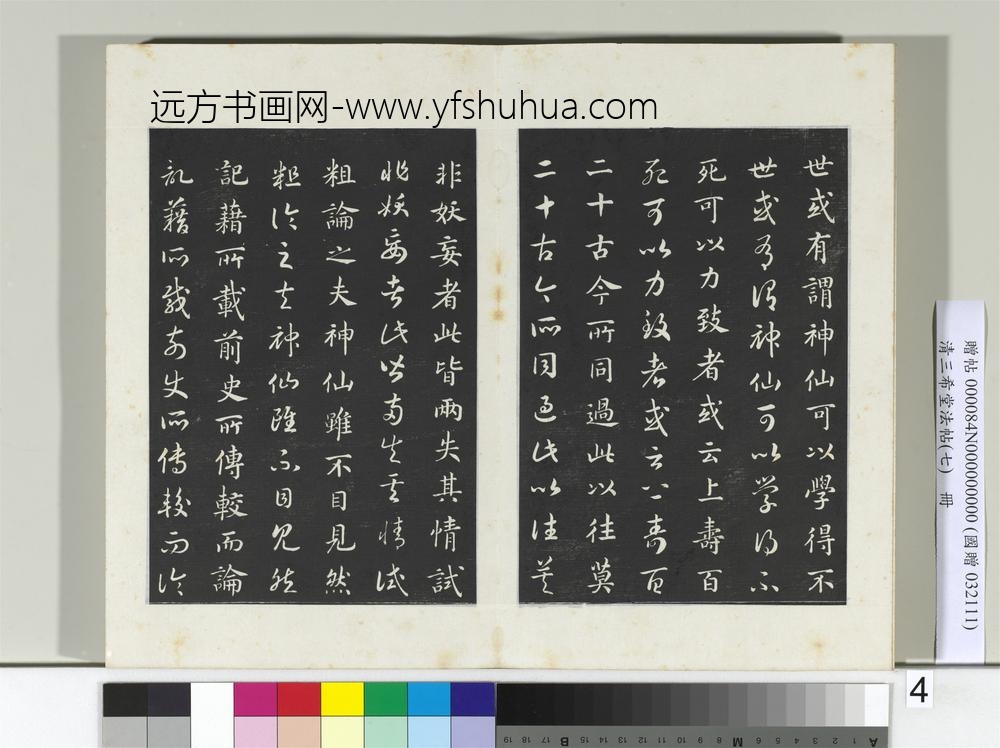 远方书画网-www.yfshuhua.com
世或有謂神仙可以學得不
世或有謂神仙可以學得不
死可以力致者或云上壽百
死可以力致者或云上壽百
二十古今所同過此以往莫
二十古今所同過此以往莫
非妖妄者此皆兩失其情試
非妖妄者此皆兩失其情試
粗論之夫神仙雖不目見然
粗論之夫神仙雖不目見然
記藉所載前史所傳較而論
記藉所載前史所傳較而論
贈帖 000084N000000000 (國贈 032111)
清三希堂法帖(七) 冊
4
A 1 2 3 4 5 6 M 8 9 10 11 12 13 14 15 B 17 18 19